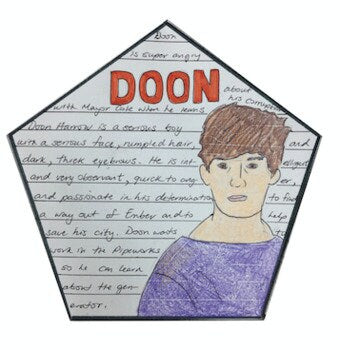 Doon
is super angry
DOON
about
with Mayor Cole when he learns his corruption
Doon Harrow is a serious boy
with a serious face, rumpled hair, and
dark, thick eyebrows. He is intelligent
and very observant, quick to anger,
and passionate in his determination to find
a way out of Ember and to help
save his city. Doon wants
work in the Pipeworks
so he can learn
about the gen-
erator.